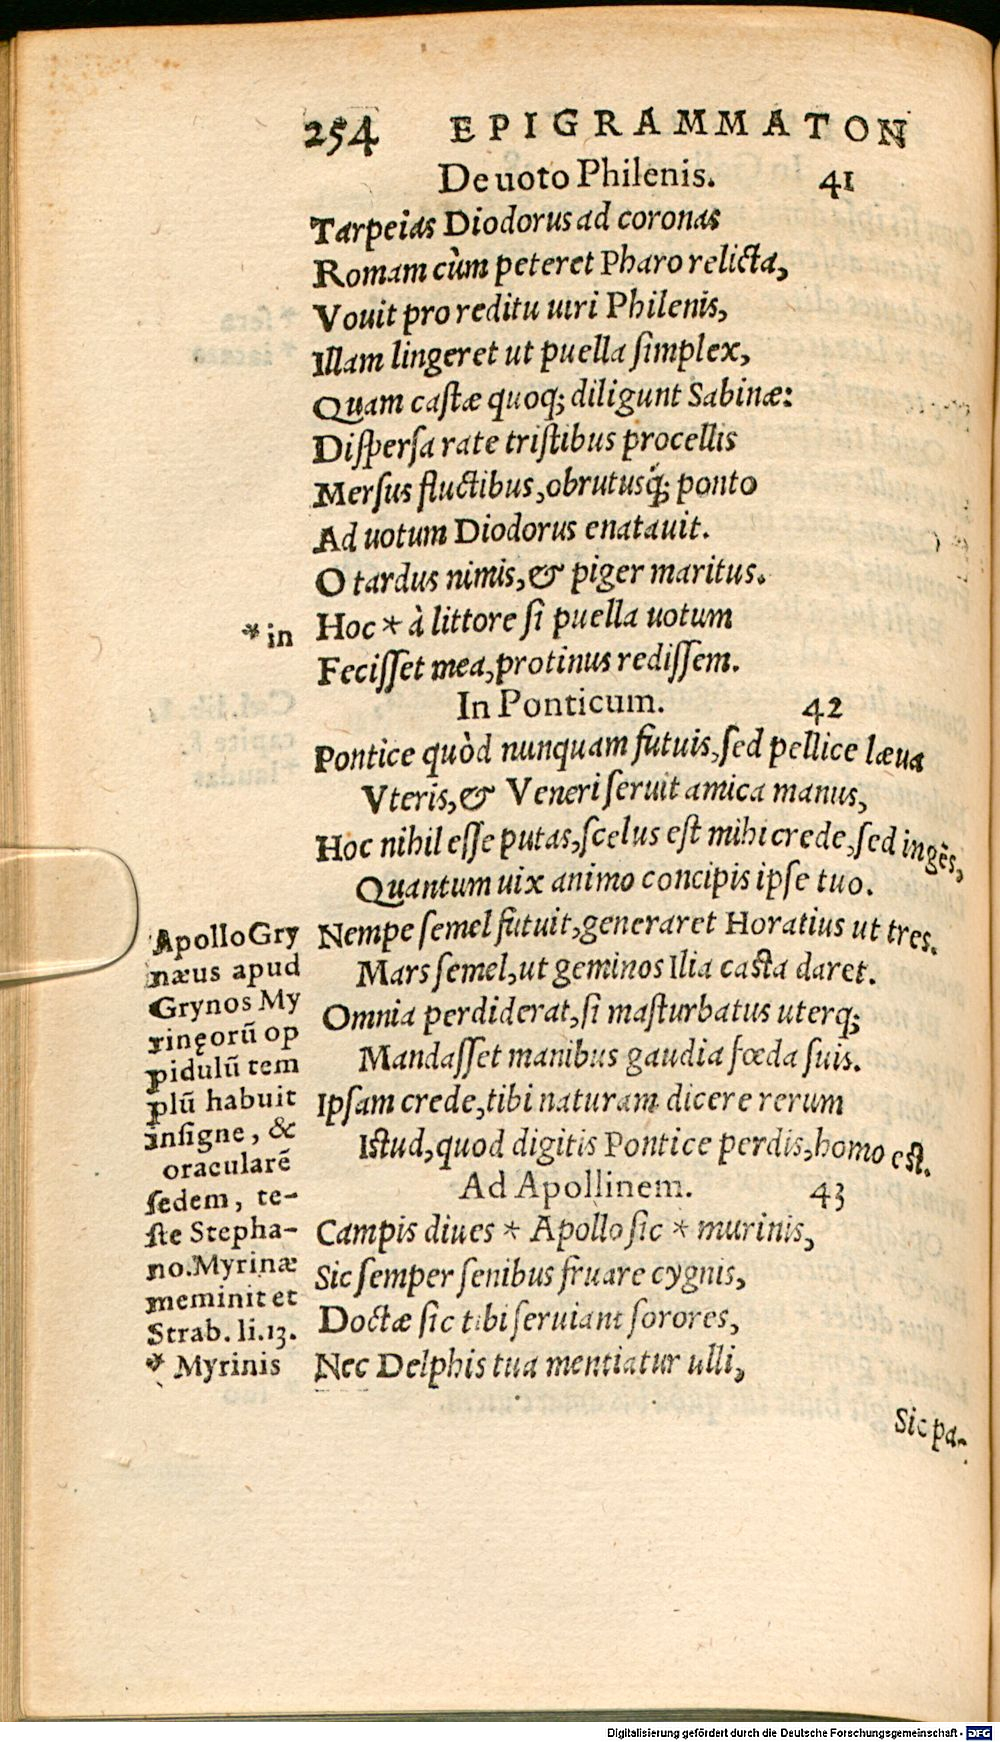 254 EPIGRAMMATON
De uoto Philenis. 41
Tarpeias Diodorus ad coronas
Romam cùm peteret Pharo relicta,
Vouit pro reditu uiri Philenis,
Illam lingeret ut puella ſimplex,
Quam caſtæ quoq; diligunt Sabinæ:
Diſperſa rate triſtibus procellis
Merſus fluctibus, obrutusq́; ponto
Ad uotum Diodorus enatauit.
O tardus nimis, & piger maritus.
Hoc * à littore ſi puella uotum
* in
Feciſſet mea, protinus rediſſem.
In Ponticum. 42
Pontice quòd nunquam futuis, ſed pellice læua
Vteris, & Veneri ſeruit amica manus,
Hoc nihil eſſe putas, ſcelus eſt mihi crede, ſed ingẽs,
Quantum uix animo concipis ipſe tuo.
Nempe ſemel futuit, generaret Horatius ut tres.
Mars ſemel, ut geminos Ilia caſta daret.
Omnia perdiderat, ſi maſturbatus uterq;
Mandaſſet manibus gaudia fœda ſuis.
Ipſam crede, tibi naturam dicere rerum
Iſtud, quod digitis Pontice perdis, homo eſt.
Ad Apollinem. 43
Campis diues * Apollo ſic * murinis,
Sic ſemper ſenibus fruare cygnis,
Doctæ ſic tibi ſeruiant ſorores,
Nec Delphis tua mentiatur ulli,
Sic pa-
Apollo Gry
næus apud
Grynos My
rinęorũ op
pidulũ tem
plũ habuit
inſigne, &
oracularẽ
ſedem, te-
ſte Stepha-
no. Myrinæ
meminit et
Strab. li.13.
* Myrinis
Digitalisierung gefördert durch die Deutsche Forschungsgemeinschaft - DFG